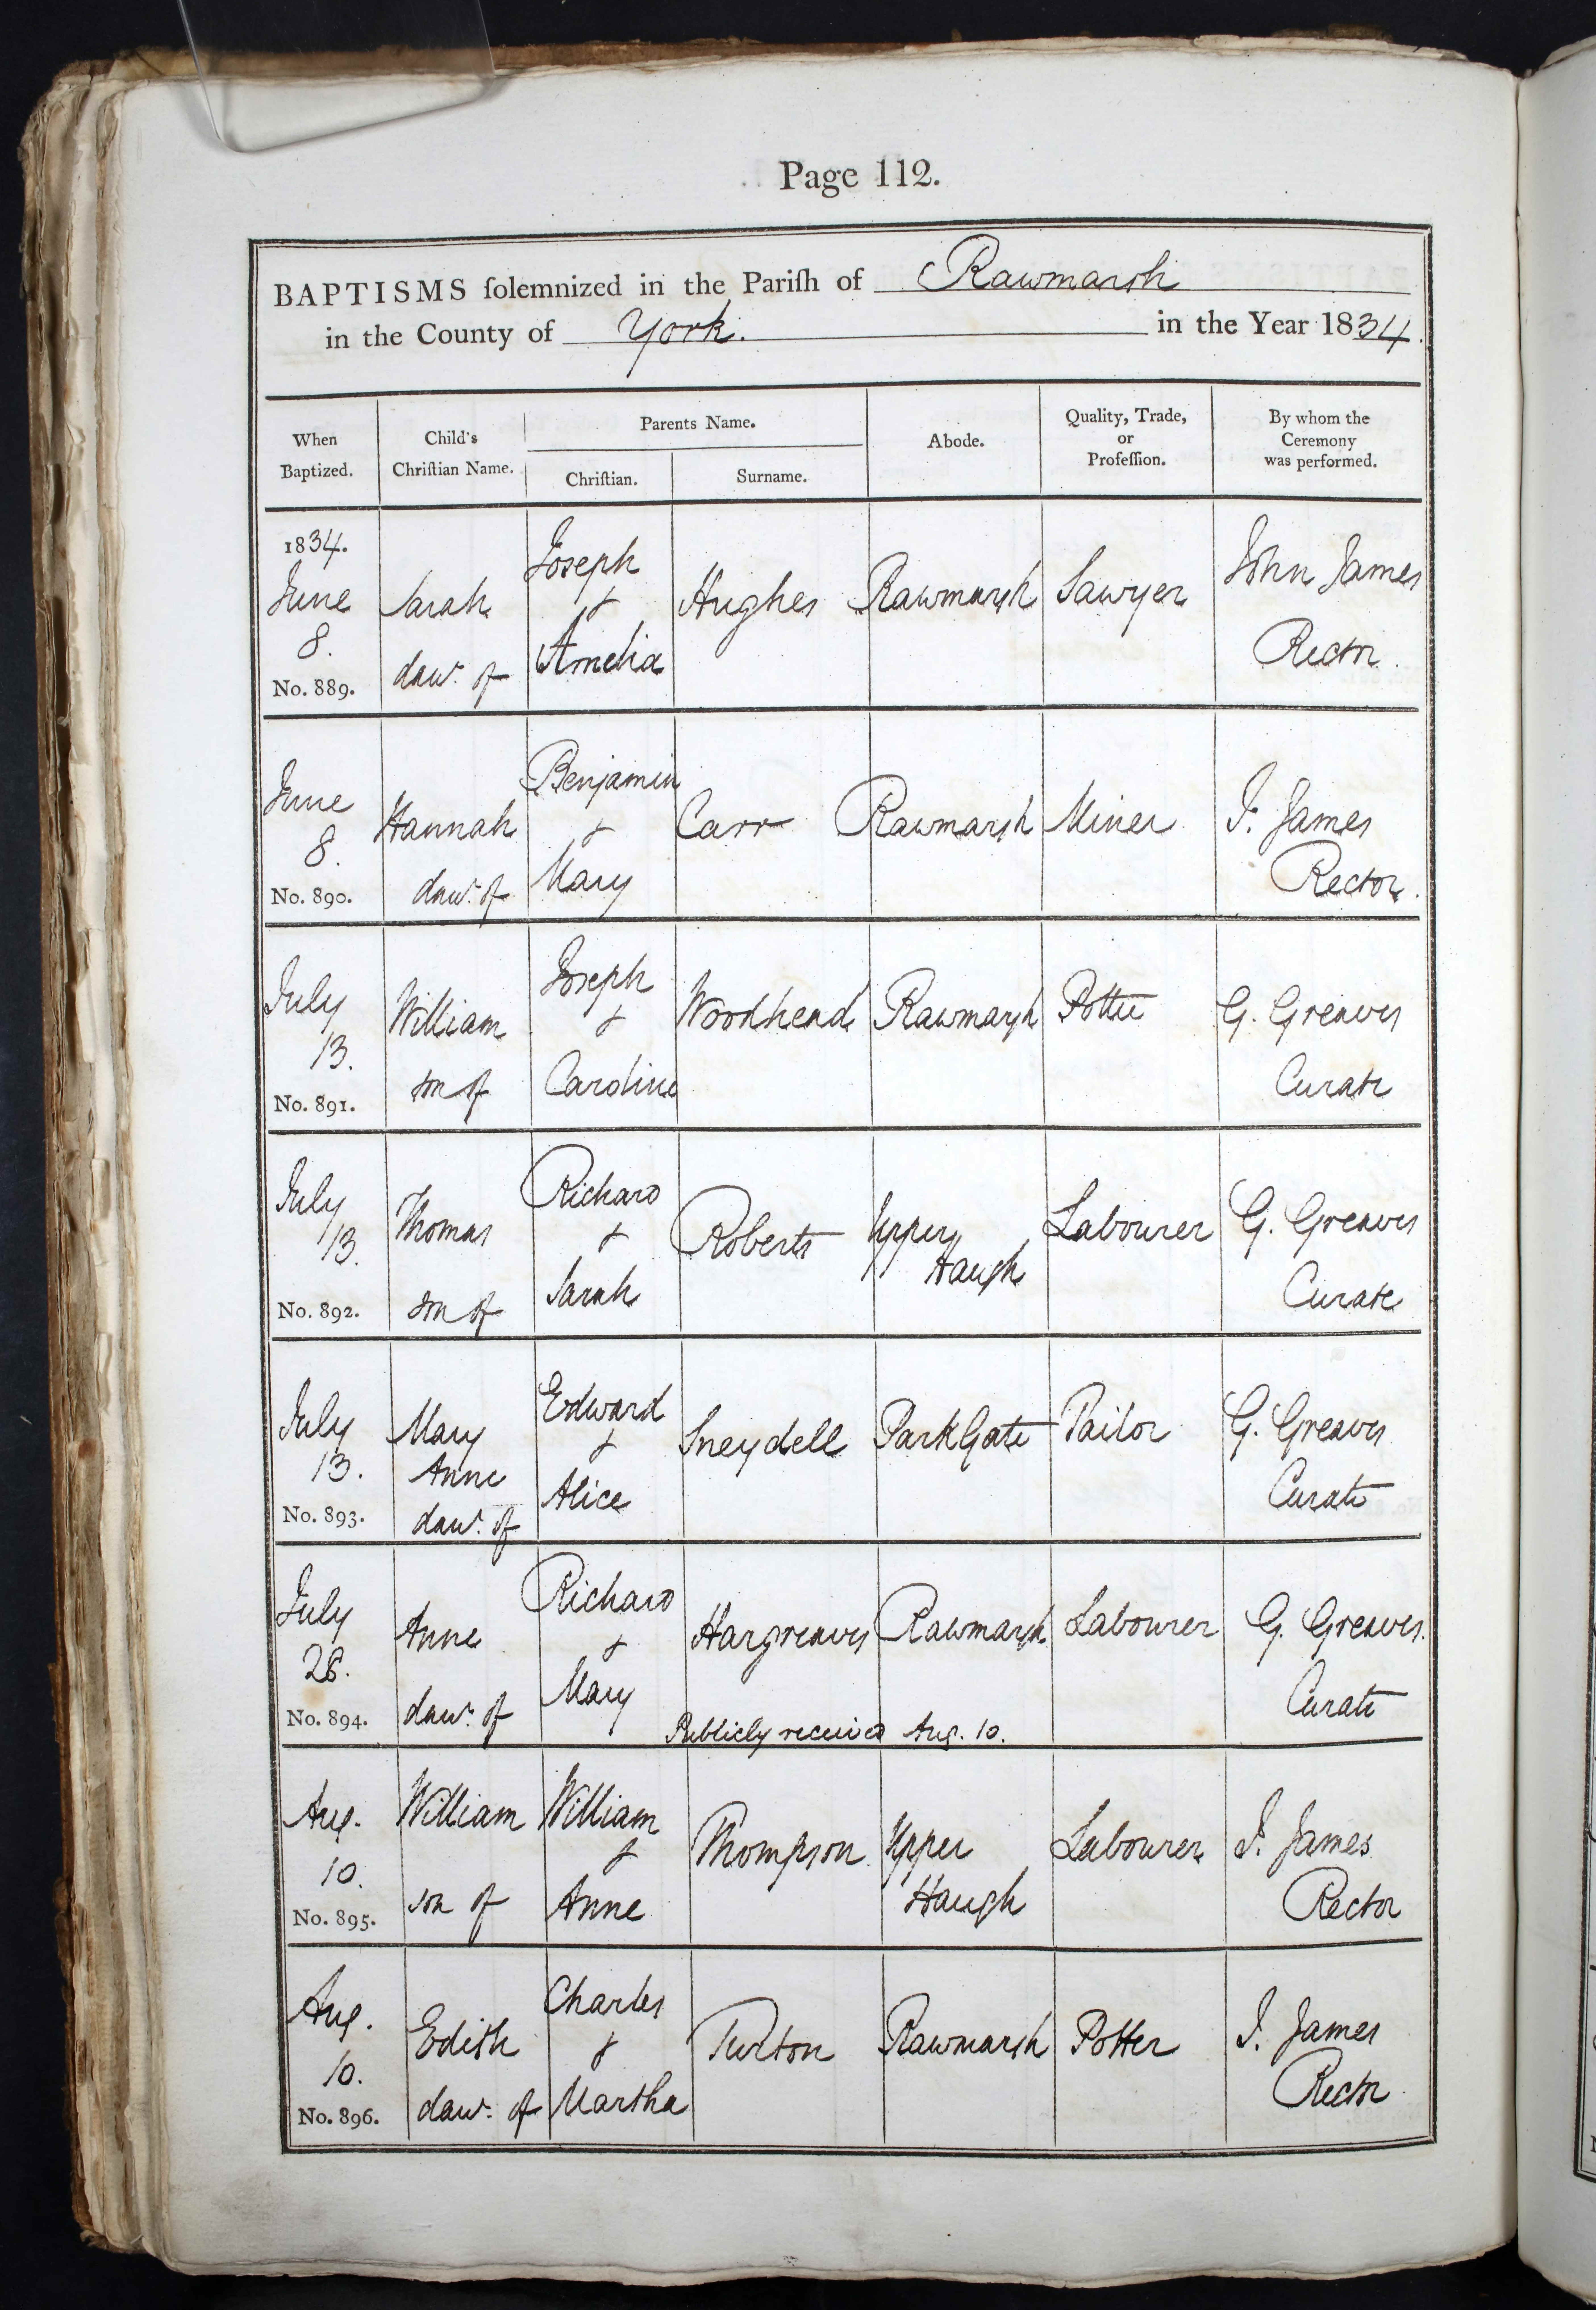 Page 112.
BAPTISMS ſolemnized in the Pariſh of Rawmarsh
in the County of York. in the Year 1834.
When Baptized.
Child's Chriſtian Name.
Parents Name.
Chriſtian.
Surname.
Abode.
Quality, Trade, or Profeſſion.
By whom the Ceremony was performed.
1834.
June 8.
No. 889.
Sarah
dawr. of
Joseph
&
Amelia
Hughes
Rawmarsh
Sawyer
John James
Rector.
June 8.
No. 890.
Hannah
dawr. of
Benjamin
&
Mary
Carr
Rawmarsh
Miner
J. James
Rector.
July 13.
No. 891.
William
son of
Joseph
&
Caroline
Woodhead
Rawmarsh
Potter
G. Greaves
Curate
July 13.
No. 892.
Thomas
son of
Richard
&
Sarah
Roberts
Upper
Haugh
Labourer
G. Greaves
Curate
July 13.
No. 893.
Mary
Anne
dawr. of
Edward
&
Alice
Sneydell
ParkGate
Tailor
G. Greaves
Curate
July
No. 894.
Anne
dawr. of
Richard
&
Mary
Hargreaves
Rawmarsh
Labourer
G. Greaves.
Curate
Publicly received Aug. 10.
Aug. 10.
No. 895.
William
son of
William
&
Anne
Thompson
Upper
Haugh
Labourer
J. James
Rector
Aug. 10.
No. 896.
Edith
dawr. of
Charles
&
Martha
Turton
Rawmarsh
Potter
J. James
Rector